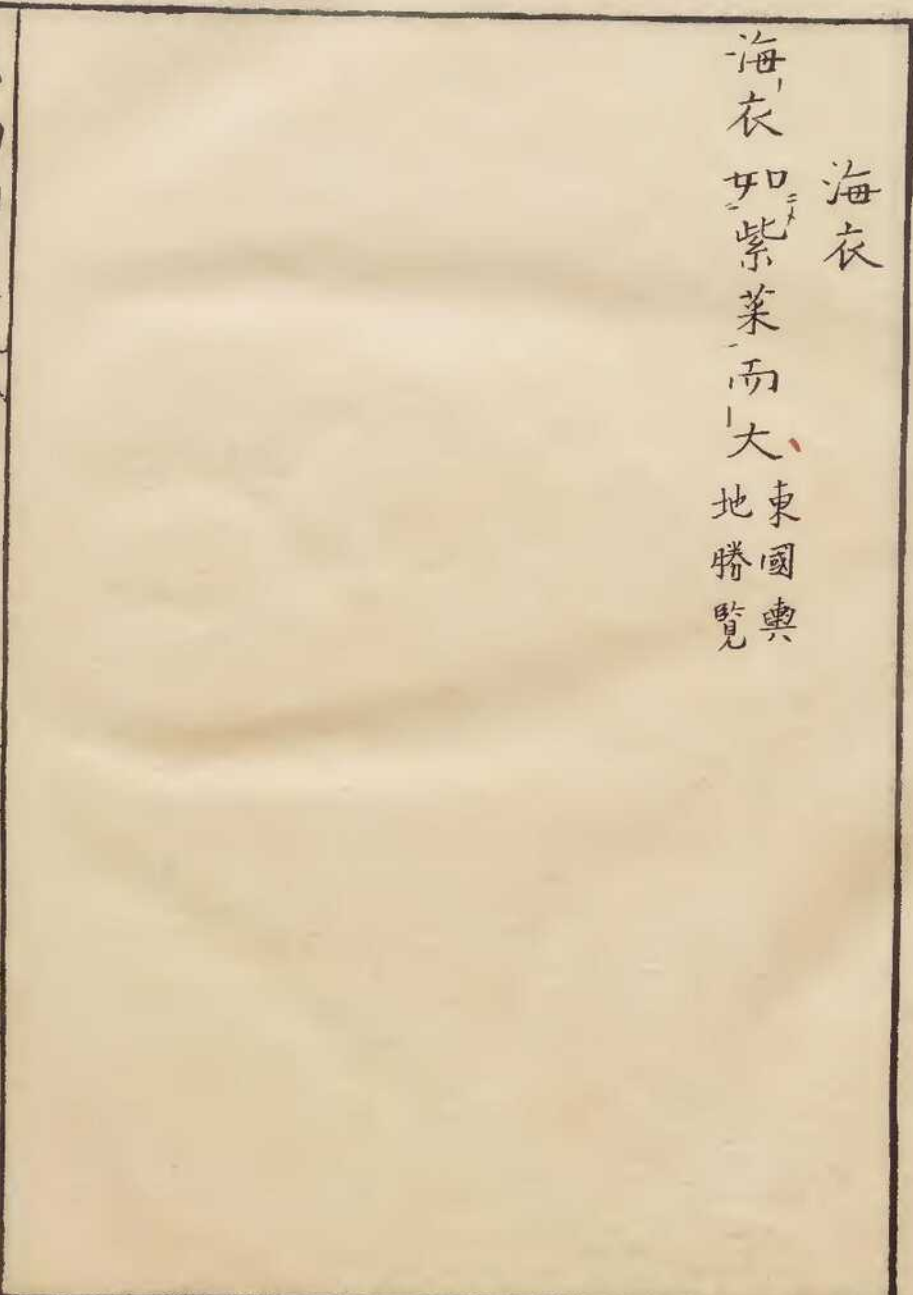 海衣
海衣如紫菜而大東國輿
地勝覧